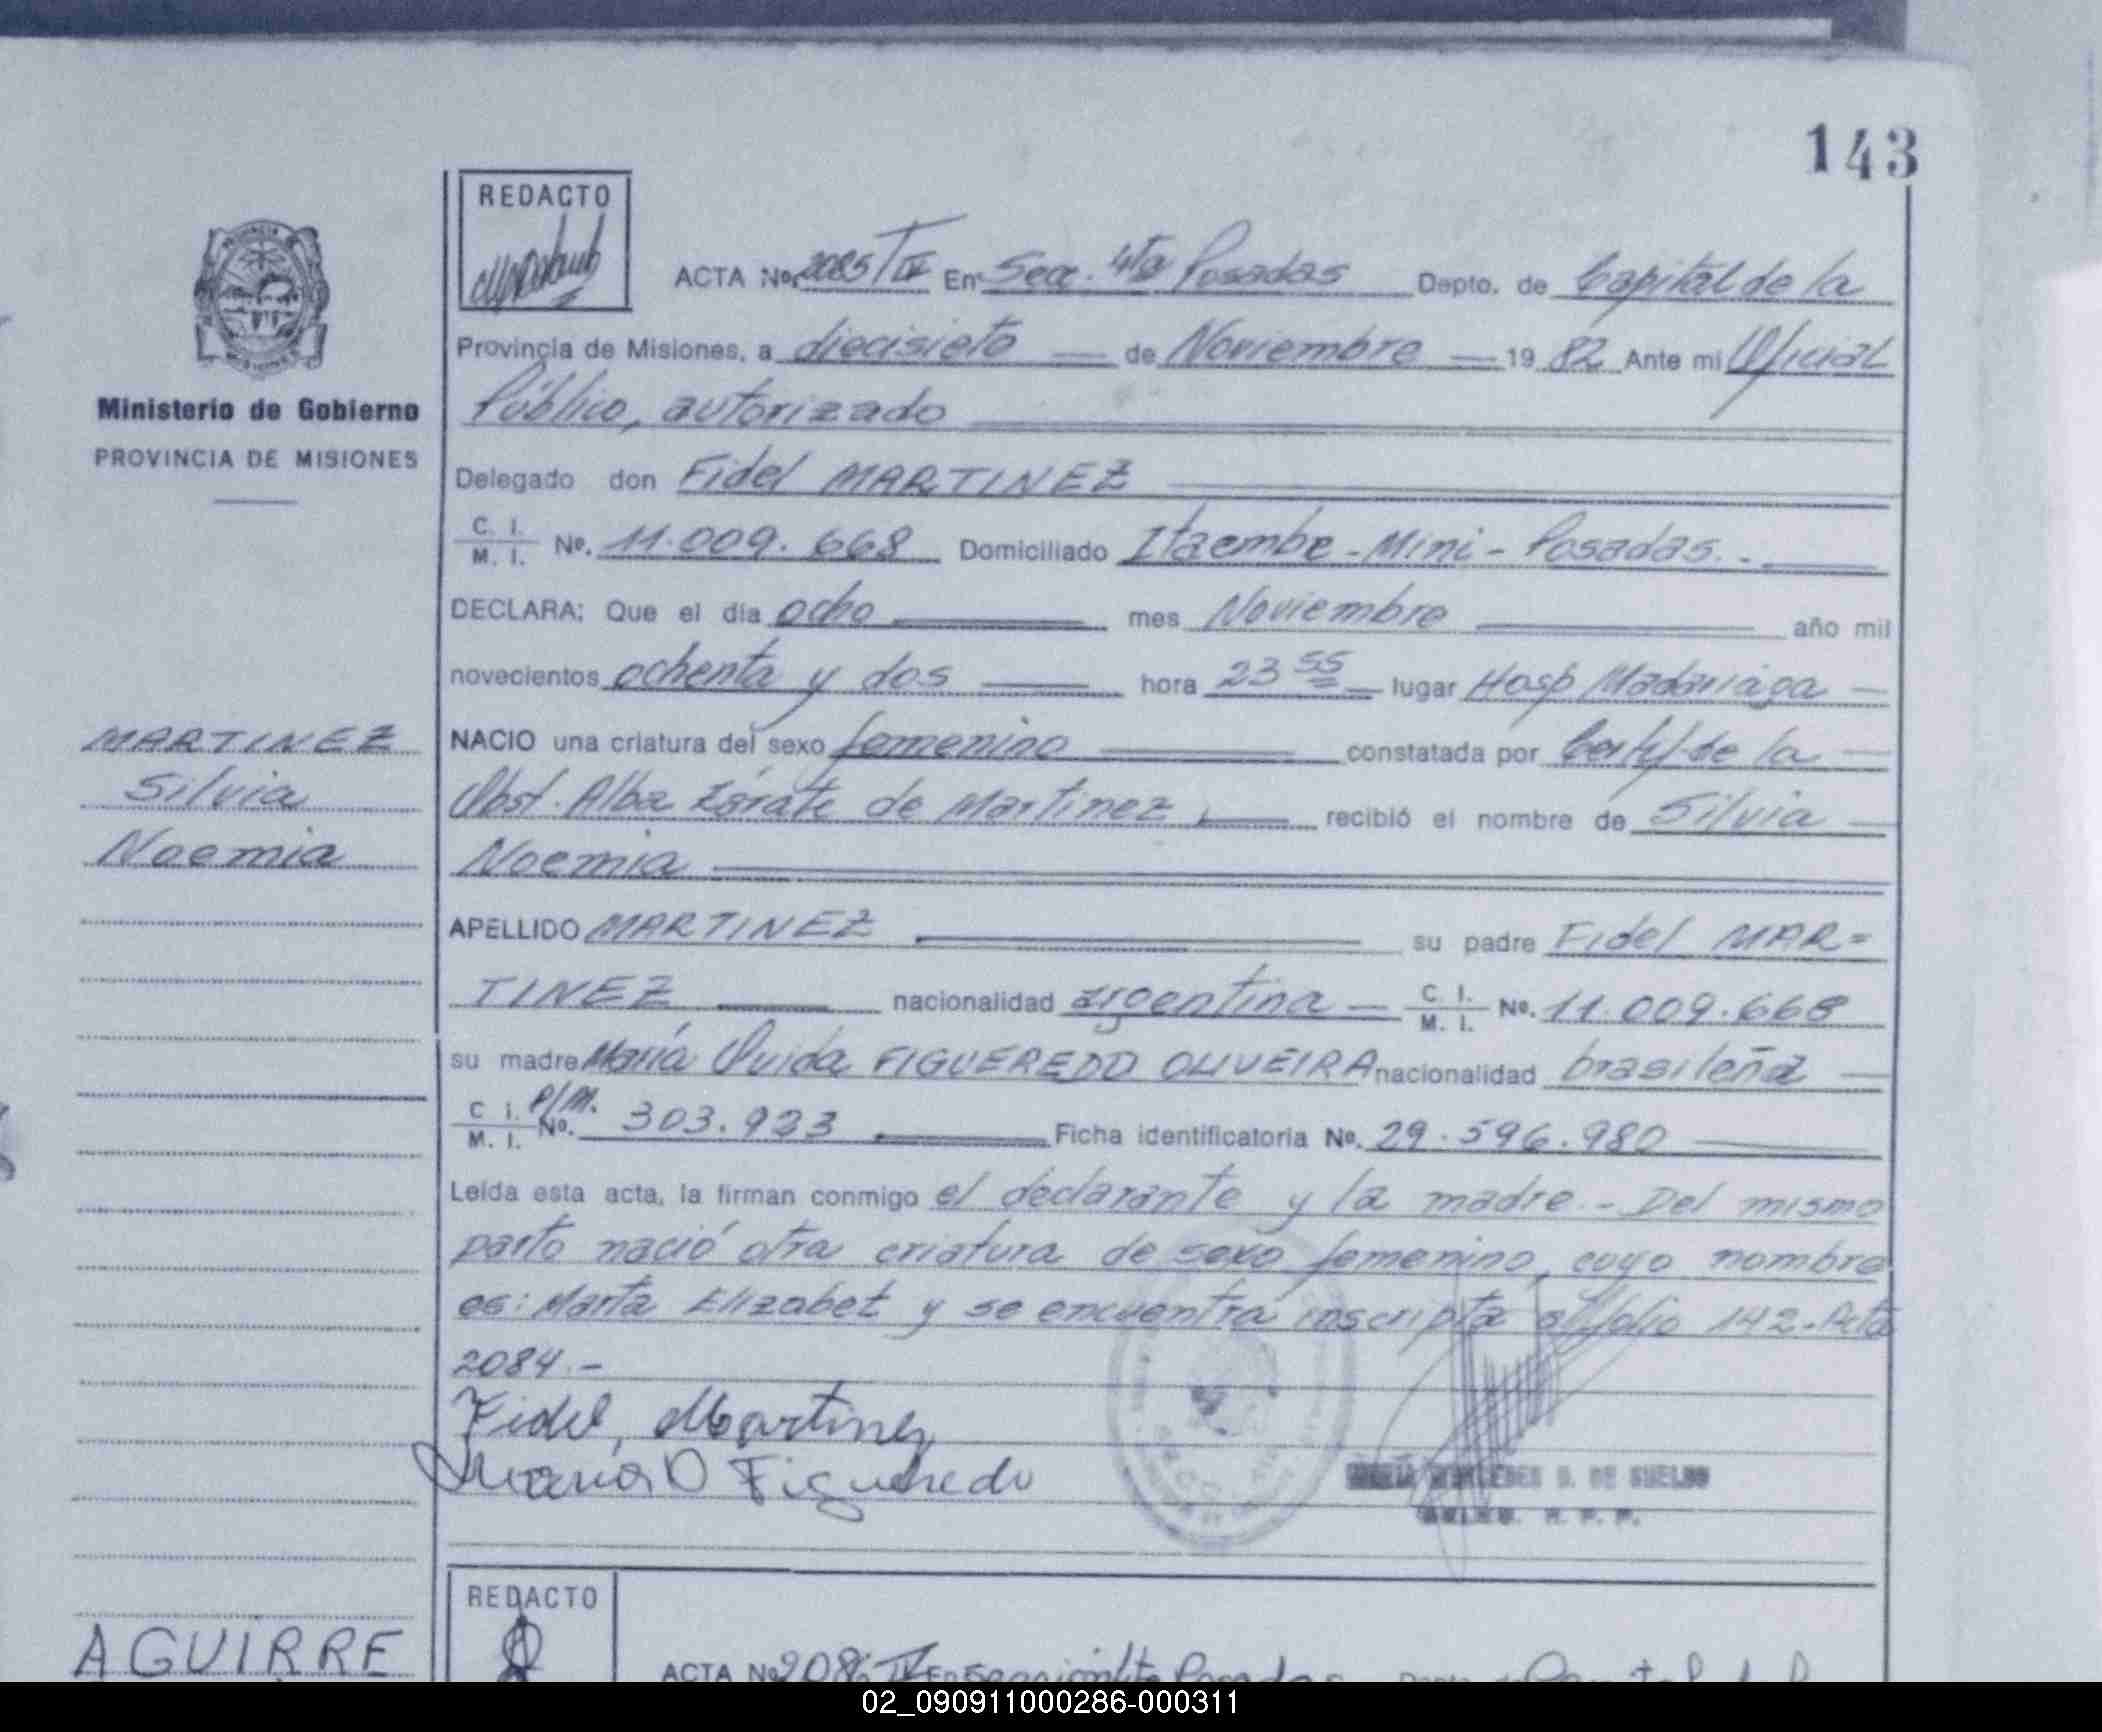 143
REDACTO
ACTA No. 2085/IV En Secc. 4ta Posadas Depto. de Capital de la
Provincia de Misiones, a diecisiete de Noviembre 1982 Ante mi Oficial
Público, autorizado
Ministerio de Gobierno
PROVINCIA DE MISIONES
Delegado don Fidel MARTINEZ
C. I. M. I. No. 11.009.668 Domiciliado Itaembe-Mini-Posadas.-
DECLARA: Que el día ocho mes Noviembre año mil
novecientos ochenta y dos hora 23 55 lugar Hosp Madariaga
MARTINEZ
Silvia
Noemia
NACIO una criatura del sexo femenino constatada por Certf de la
Obst. Alba Zárate de Martinez recibió el nombre de Silvia
Noemia
APELLIDO MARTINEZ su padre Fidel MAR=
TINEZ nacionalidad argentina C. I. M. I. No. 11.009.668
su madre María Ovida FIGUEREDO OLIVEIRA nacionalidad brasileña
C. I. M. I. P/M. No. 303.923 Ficha identificatoria No. 29.596.980
Leida esta acta, la firman conmigo el declarante y la madre.- Del mismo
parto nació otra criatura de sexo femenino, cuyo nombre
es: Marta Elizabet y se encuentra inscripta al folio 142-Acta
2084.-
Fidel, Martinez
Maria O Figueredo
MARIA MERCEDES D. DE SUELDO
REDACTO
AGUIRRE
ACTA No. 2086 IV En Sección 4ta Posadas Depto. de Capital de l
02_090911000286-000311